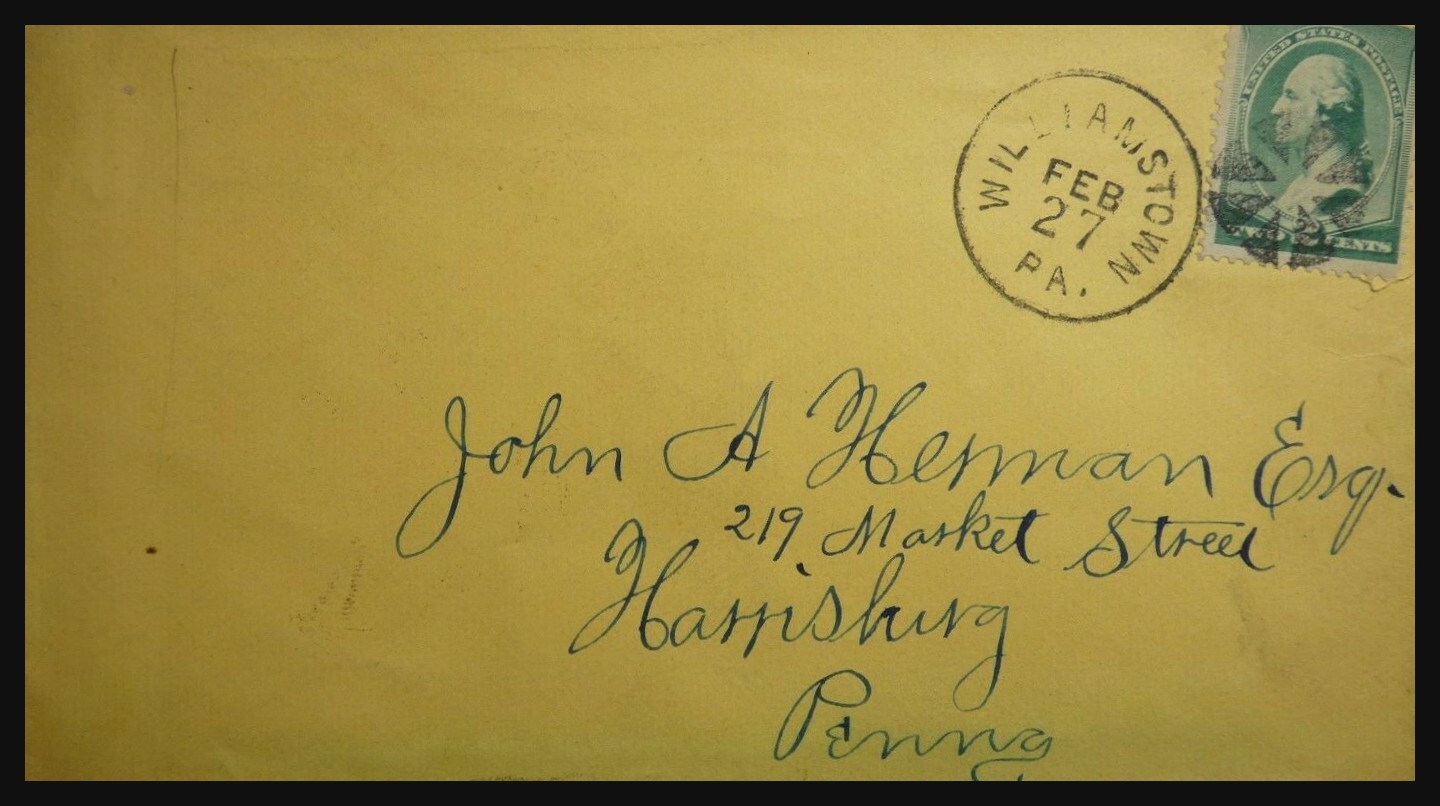 UNITED STATES POSTAGE
WILLIAMSTOWN
FEB
27
PA.
CENTS
John A Herman Esq.
219 Market Street
Harrisburg
Penna